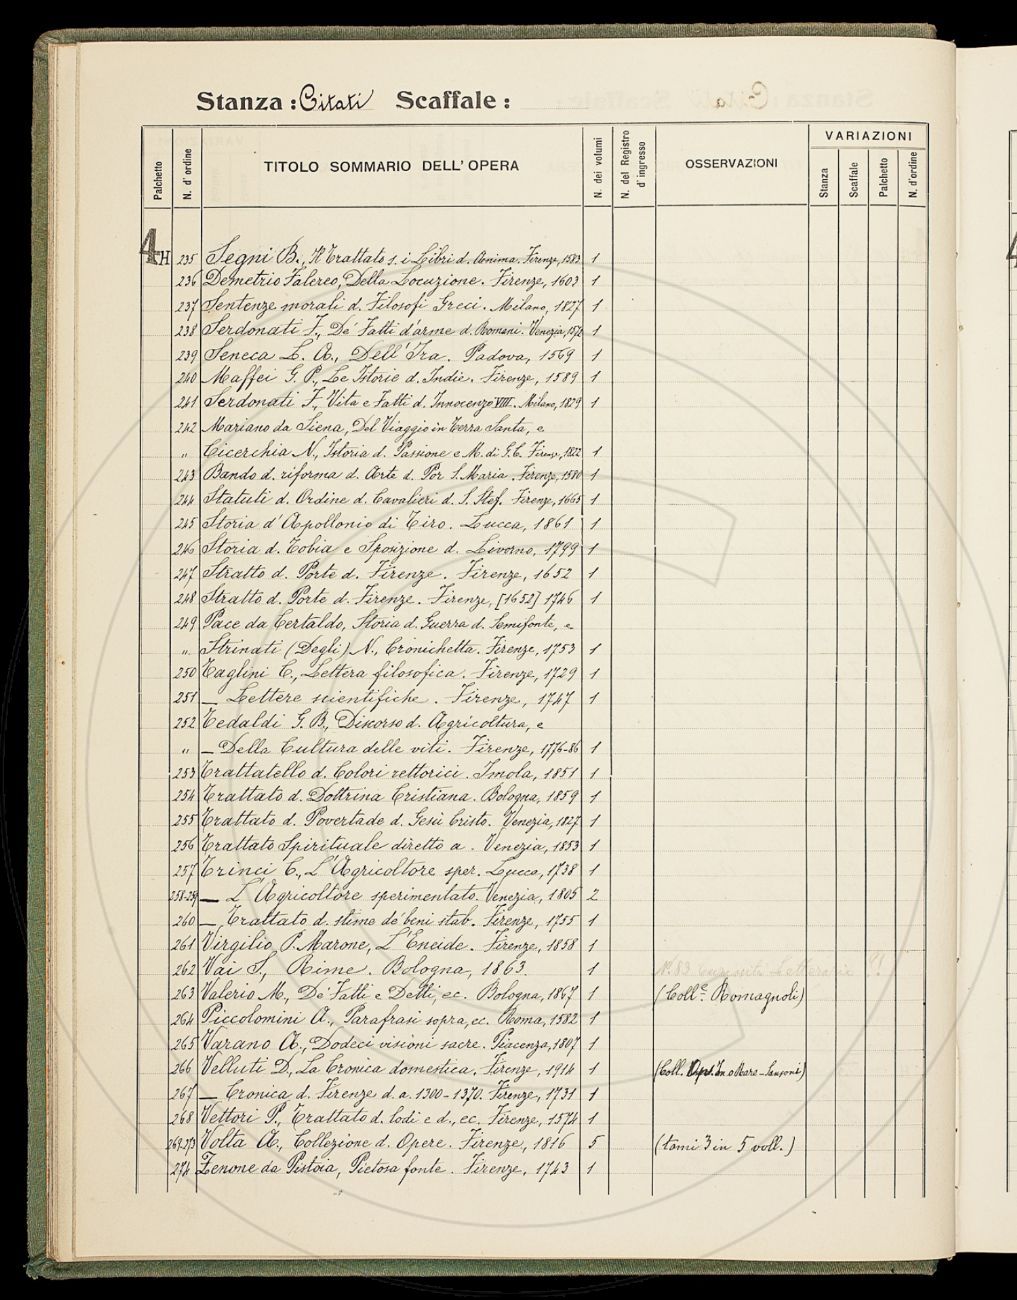 Stanza: Citati Scaffale:
Palchetto N. d'ordine TITOLO SOMMARIO DELL'OPERA N. dei volumi N. del Registro d'ingresso OSSERVAZIONI VARIAZIONI Stanza Scaffale Palchetto N. d'ordine
4H 235 Segni B., Il Trattato s. i Libri d. Anima. Firenze, 1583 1
236 Demetrio Falereo, Della Locuzione. Firenze, 1603 1
237 Sentenze morali d. Filosofi Greci. Milano, 1827 1
238 Serdonati F., De' Fatti d'arme d. Romani. Venezia, 1572 1
239 Seneca L. A., Dell'Ira. Padova, 1569 1
240 Maffei G. P., Le Istorie d. Indie. Firenze, 1589 1
241 Serdonati F., Vita e Fatti d. Innocenzo VIII. Milano, 1829 1
242 Mariano da Siena, Del Viaggio in Terra Santa, e
" Cicerchia N., Istoria d. Passione e M. di G. C. Firenz., 1822 1
243 Bando d. riforma d. Arte d. Por S. Maria. Firenze, 1580 1
244 Statuti d. Ordine d. Cavalieri d. S. Stef. Firenze, 1665 1
245 Storia d'Apollonio di Tiro. Lucca, 1861 1
246 Storia d. Tobia e Sposizione d. Livorno, 1799 1
247 Stratto d. Porte d. Firenze. Firenze, 1652 1
248 Stratto d. Porte d. Firenze. Firenze, [1652] 1746 1
249 Pace da Certaldo, Storia d. Guerra d. Semifonte, e
" Strinati (Degli) N., Cronichetta. Firenze, 1753 1
250 Taglini C., Lettera filosofica. Firenze, 1729 1
251 — Lettere scientifiche. Firenze, 1747 1
252 Tedaldi G. B., Discorso d. Agricoltura, e
" — Della Cultura delle viti. Firenze, 1776-86 1
253 Trattatello d. Colori rettorici. Imola, 1851 1
254 Trattato d. Dottrina Cristiana. Bologna, 1859 1
255 Trattato d. Povertade d. Gesù Cristo. Venezia, 1827 1
256 Trattato Spirituale diretto a. Venezia, 1853 1
257 Trinci C., L'Agricoltore sper. Lucca, 1738 1
258-259 — L'Agricoltore sperimentato. Venezia, 1805 2
260 — Trattato d. stime de' beni stab. Firenze, 1755 1
261 Virgilio P. Marone, L'Eneide. Firenze, 1858 1
262 Vai S., Rime. Bologna, 1863. 1 N.° 83 Curiosità Letterarie !!
263 Valerio M., De' Fatti e Detti, ec. Bologna, 1867 1 (Coll.e Romagnoli)
264 Piccolomini A., Parafrasi sopra, ec. Roma, 1582 1
265 Varano A., Dodeci visioni sacre. Piacenza, 1807 1
266 Velluti D., La Cronica domestica. Firenze, 1914 1 (Coll. Sansoni)
267 — Cronica d. Firenze d. a. 1300-1370. Firenze, 1731 1
268 Vettori P., Trattato d. lodi e d., ec. Firenze, 1574 1
269-273 Volta A., Collezione d. Opere. Firenze, 1816 5 (tomi 3 in 5 voll.)
274 Zenone da Pistoia, Pietosa fonte. Firenze, 1743 1